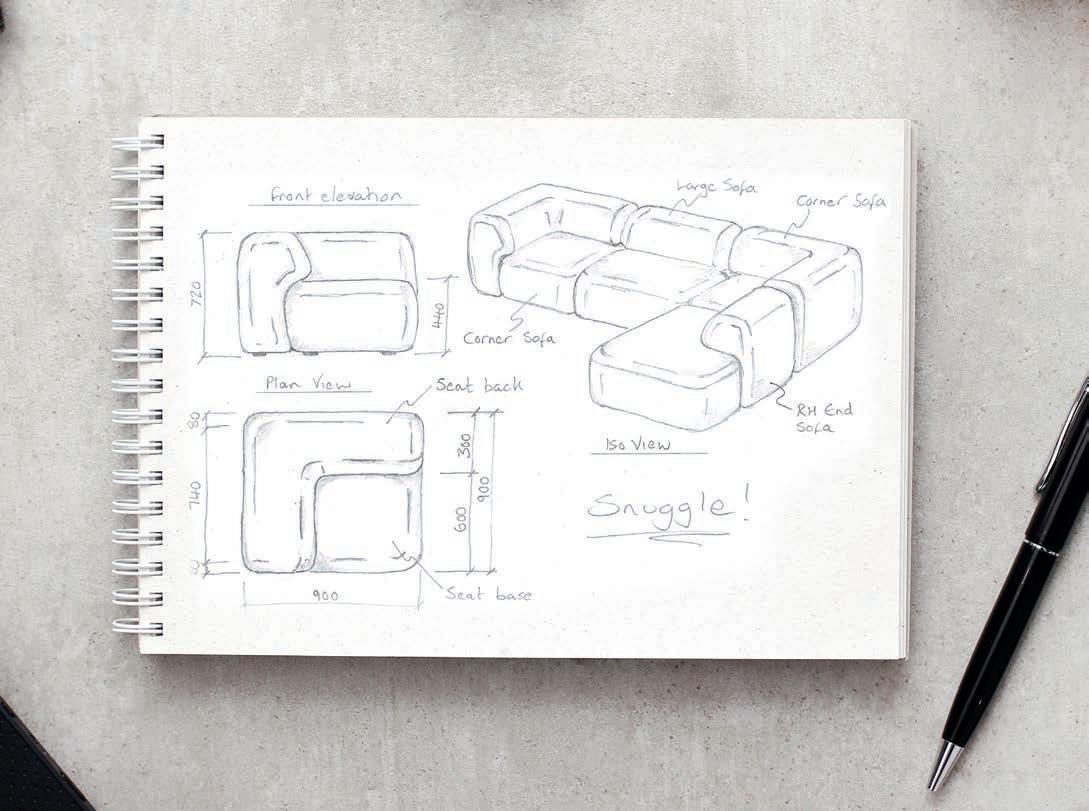 Front elevation
720
440
Plan View
Seat back
80
740
300
600
900
900
Seat base
Large Sofa
Corner Sofa
Corner Sofa
RH End
Sofa
Iso View
Snuggle!